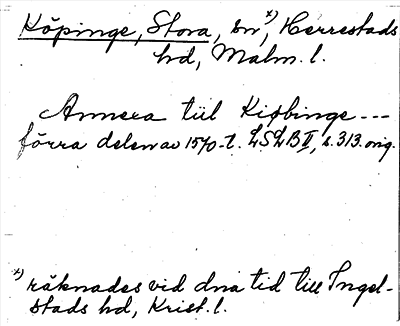 Köpinge, Stora, sn x), Herrestads
hd, Malm. l.
Annexa tiil Kiøbinge ---
förra delen av 1570-t. LSLB II, s. 313. orig.
x) räknades vid dna tid till Ingel-
stads hd, Krist. l.